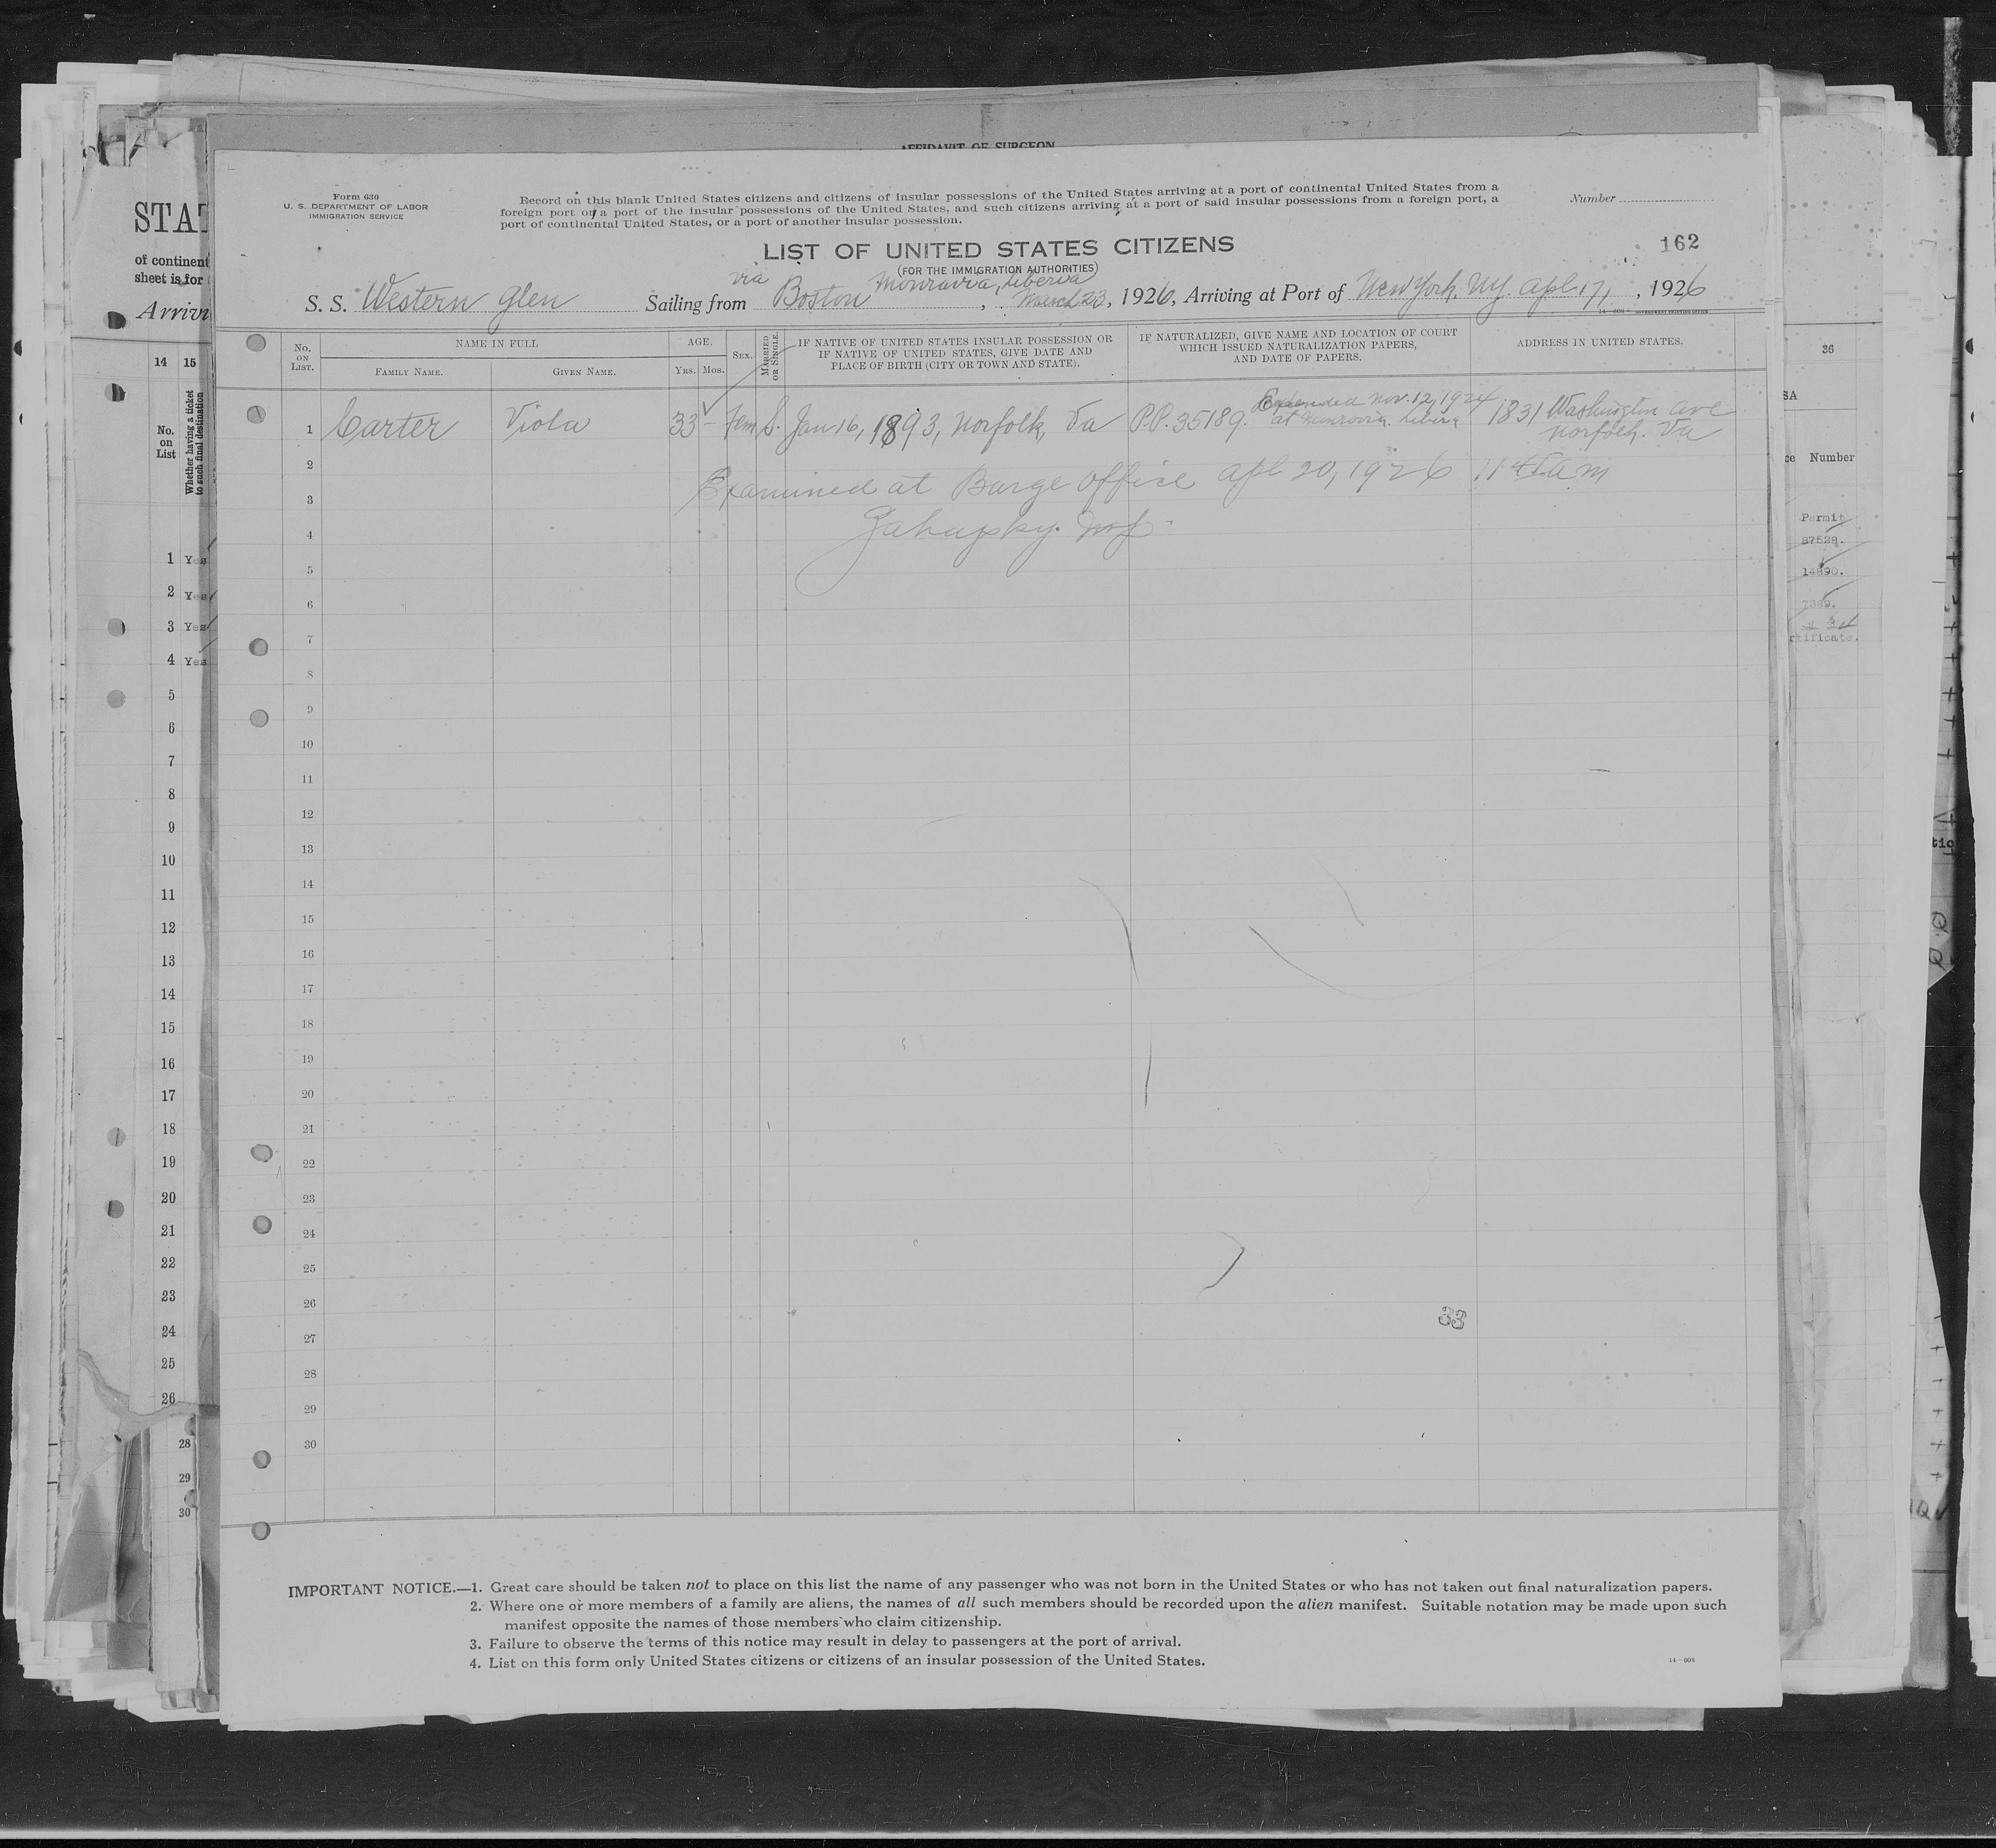 AFFIDAVIT OF SURGEON
Form 630
U. S. DEPARTMENT OF LABOR
IMMIGRATION SERVICE
Record on this blank United States citizens and citizens of insular possessions of the United States arriving at a port of continental United States from a
foreign port or a port of the insular possessions of the United States, and such citizens arriving at a port of said insular possessions from a foreign port, a
port of continental United States, or a port of another insular possession.
Number
LIST OF UNITED STATES CITIZENS
162
(FOR THE IMMIGRATION AUTHORITIES)
via Monrovia, Liberia
S. S. Western Glen Sailing from Boston, March 23, 1926, Arriving at Port of New York, NY. Apl 17, , 1926
14—608 GOVERNMENT PRINTING OFFICE
No. ON LIST.
NAME IN FULL
FAMILY NAME.
GIVEN NAME.
AGE.
YRS. MOS.
SEX.
MARRIED OR SINGLE.
IF NATIVE OF UNITED STATES INSULAR POSSESSION OR
IF NATIVE OF UNITED STATES, GIVE DATE AND
PLACE OF BIRTH (CITY OR TOWN AND STATE).
IF NATURALIZED, GIVE NAME AND LOCATION OF COURT
WHICH ISSUED NATURALIZATION PAPERS,
AND DATE OF PAPERS.
ADDRESS IN UNITED STATES.
1 Carter Viola 33 – Fem S. Jan 16, 1893, Norfolk, Va P.P. 35189. Extended Nov. 12, 1924 at Monrovia. Liberia 1831 Washington Ave Norfolk. Va
2
Examined at Barge Office Apl 20, 1926 11 45 am
3
4
5
6
7
8
9
10
11
12
13
14
15
16
17
18
19
20
21
22
23
24
25
26
33
27
28
29
30
IMPORTANT NOTICE.—1. Great care should be taken not to place on this list the name of any passenger who was not born in the United States or who has not taken out final naturalization papers.
2. Where one or more members of a family are aliens, the names of all such members should be recorded upon the alien manifest. Suitable notation may be made upon such
manifest opposite the names of those members who claim citizenship.
3. Failure to observe the terms of this notice may result in delay to passengers at the port of arrival.
4. List on this form only United States citizens or citizens of an insular possession of the United States.
14—608
STAT
of continent
sheet is for
Arrivi
14 15
No. on List
Whether having a ticket to such final destination
1 Yes
2 Yes
3 Yes
4 Yes
5
6
7
8
9
10
11
12
13
14
15
16
17
18
19
20
21
22
23
24
25
26
28
29
30
36
SA
ce Number
Permit
87528.
14890.
7389.
rtificate.
tic